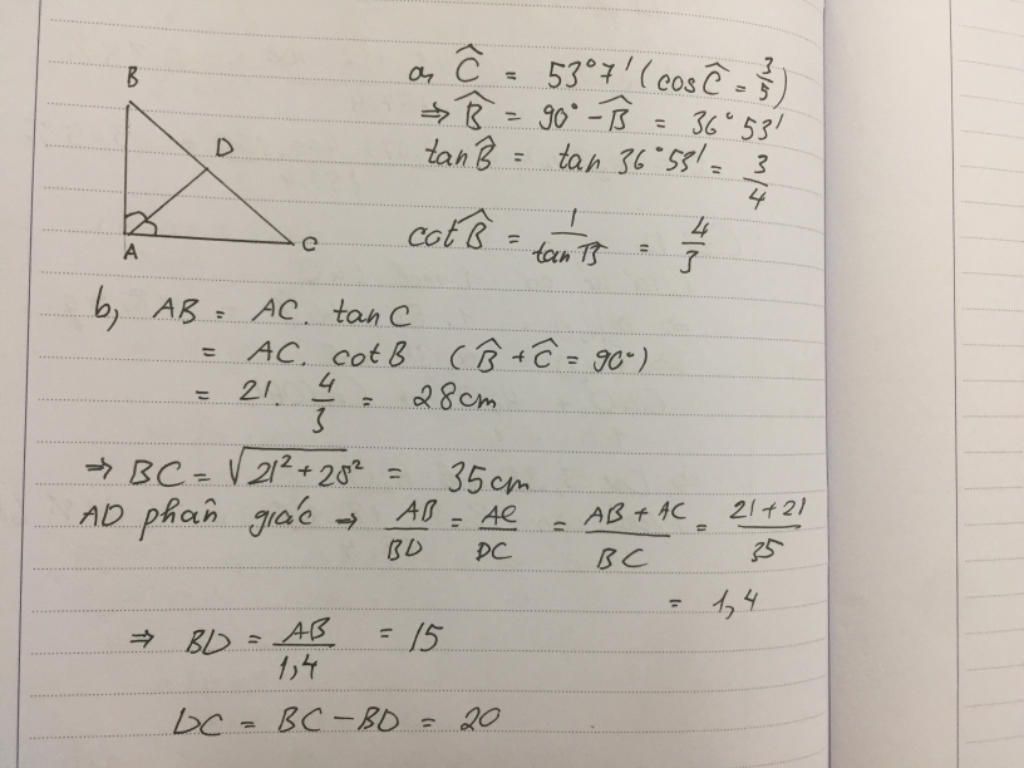 B
D
A
C
a, Ĉ = 53°7' (cosĈ = 3/5)
⇒ B̂ = 90° - B̂ = 36°53'
tanB̂ = tan 36°53' = 3/4
cotB̂ = 1/tanB̂ = 4/3
b, AB = AC. tanC
= AC. cotB (B̂ + Ĉ = 90°)
= 21. 4/3 = 28cm
⇒ BC = √(21² + 28²) = 35cm
AD phân giác → AB/BD = AC/DC = AB + AC/BC = 21+21/35
= 1,4
⇒ BD = AB/1,4 = 15
DC = BC - BD = 20